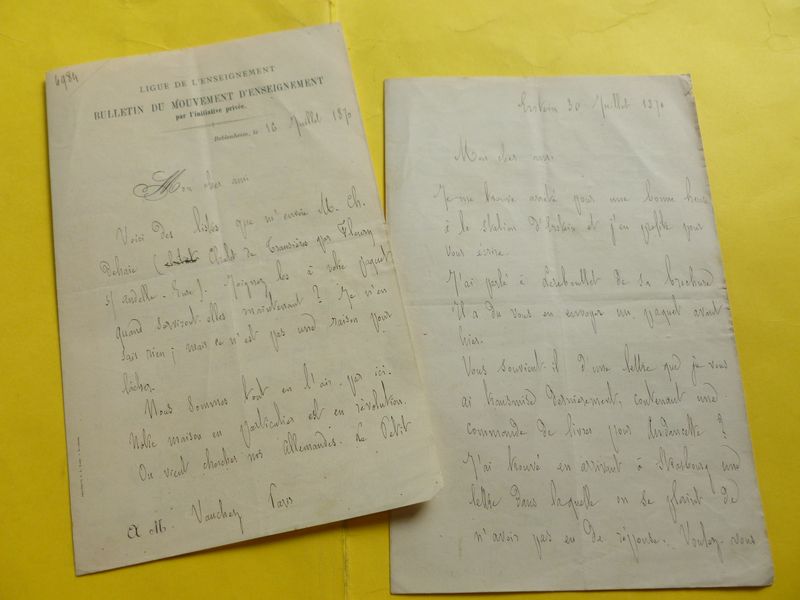 6984
LIGUE DE L'ENSEIGNEMENT
BULLETIN DU MOUVEMENT D'ENSEIGNEMENT
par l'initiative privée.
Beblenheim, le 16 Juillet 1870
Mon cher ami
Voici des listes que m'envoie M. Ch.
Delhaie ( Chalet de Transières par Fleury
s/ andelle. Eure). Joignez les à votre paquet
quand serviront-elles maintenant ? Je n'en
sais rien ; mais ce n'est pas une raison pour
lâcher.
Nous sommes tout en l'air par ici.
Notre maison en particulier est en révolution.
On vient chercher nos allemandes. Le Petit
A M. Vauchez Paris
Erstein 30 Juillet 1870
Mon cher ami
Je me trouve arrêté pour une bonne heure
à la station d'Erstein et j'en profite pour
vous écrire.
J'ai parlé à Lereboullet de sa brochure
Il a du vous en envoyer un paquet avant
hier.
Vous souvient-il d'une lettre que je vous
ai transmise dernièrement, contenant une
commande de livres pour ?
J'ai trouvé en arrivant à Strasbourg une
lettre dans laquelle on se plaint de
n'avoir pas eu de réponse. Voulez-vous